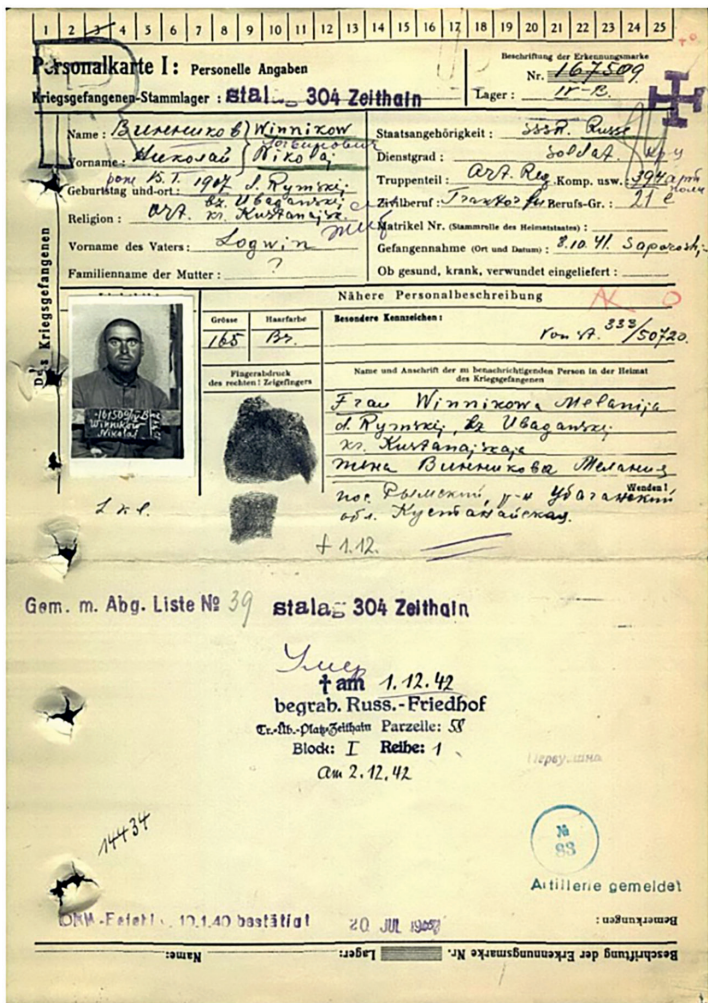 1 2 3 4 5 6 7 8 9 10 11 12 13 14 15 16 17 18 19 20 21 22 23 24 25
Personalkarte I: Personelle Angaben
Kriegsgefangenen-Stammlager: stalag 304 Zeithain
Beschriftung der Erkennungsmarke
Nr. 167509
Lager: IV-B.
Des Kriegsgefangenen
Name: Винников } Winnikow
Vorname: Николай } Nikolaj
Логвинович
Geburtstag und -ort: 15.1.1907 d. Rymskij
bz. Ubaganskij
kr. Kustanajsk.
Religion: ort.
Vorname des Vaters: Logwin
Familienname der Mutter: ?
Staatsangehörigkeit: Russe
Dienstgrad: Soldat
Truppenteil: Art. Reg. Komp. usw.: 394
Zivilberuf: Berufs-Gr.: 21
Matrikel Nr. (Stammrolle des Heimatstaates):
Gefangennahme (Ort und Datum): 8.10.41. Saporosh.
Ob gesund, krank, verwundet eingeliefert:
Nähere Personalbeschreibung
Grösse Haarfarbe
165 Br.
Besondere Kennzeichen:
von St. 333/50720.
Fingerabdruck
des rechten! Zeigefingers
Winnikow
Nikolai
Name und Anschrift der zu benachrichtigenden Person in der Heimat
des Kriegsgefangenen
Frau Winnikowa Melanija
d. Rymskij, bz Ubaganskij
kr. Kustanajskaja
жена Винникова Мелания
Wenden!
пос. Рымский, р-н Убаганский
обл. Кустанайская.
† 1.12.
Gem. m. Abg. Liste № 39 stalag 304 Zeithain
Умер
† am 1.12.42
begrab. Russ.-Friedhof
Tr.-Üb.-Platz Zeithain Parzelle: 58
Block: I Reihe: 1
am 2.12.42
14434
№
83
Artillerie gemeldet
10.1.40 bestätigt
20 JUL
Bemerkungen:
Beschriftung der Erkennungsmarke Nr. Lager: Name: